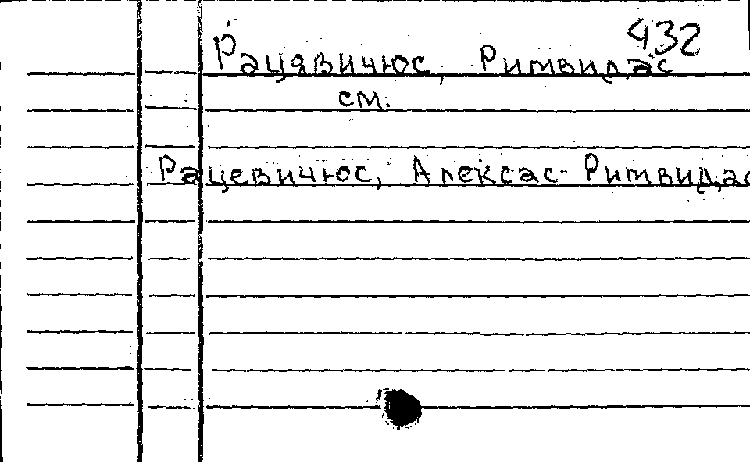 432
Рацявичюс, Римвидас
см.
Рацевичюс, Алексас-Римвидас